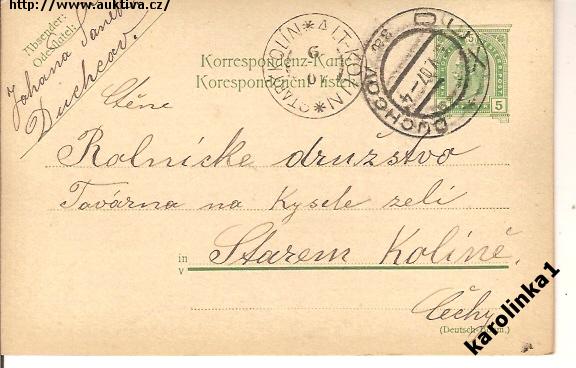 http://www.auktiva.cz/
Absender:
Odesílatel:
Johana
Duchcov.
Korrespondenz-Karte
Korespondenční lístek
STARÝ KOLÍN * ALT-KOLIN *
DUX
DUCHCOV
5
Ctěné
Rolnické družstvo
Továrna na Kyselé zelí
in
v
Starem Kolíně.
Čechy
(Deutsch-Böhm.)
karolinka1